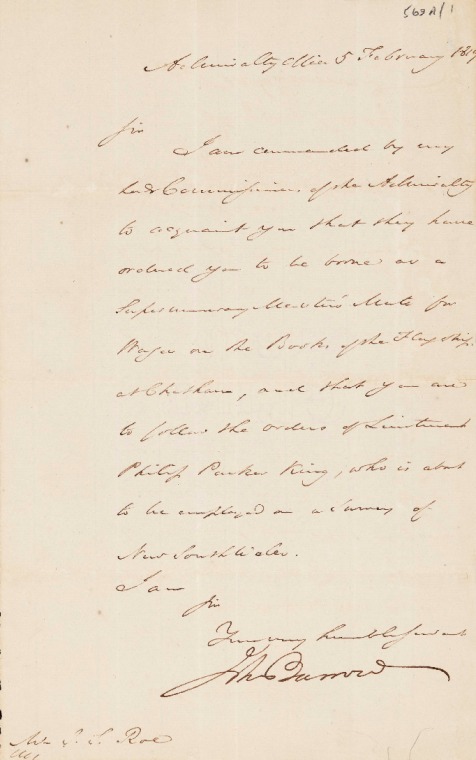 563A/1
Admiralty Office 5 February 1817
Sir
I am commanded by my
Lords Commissioners of the Admiralty
to acquaint you that they have
ordered you to be borne as a
Supernumerary Master's Mate for
Wages on the Books of the Flag Ship
at Chatham, and that you are
to follow the orders of Lieutenant
Philip Parker King, who is about
to be employed on a Survey of
New South Wales.
I am
Sir
Your very humble Servant
John Barrow
Mr J. S. Roe